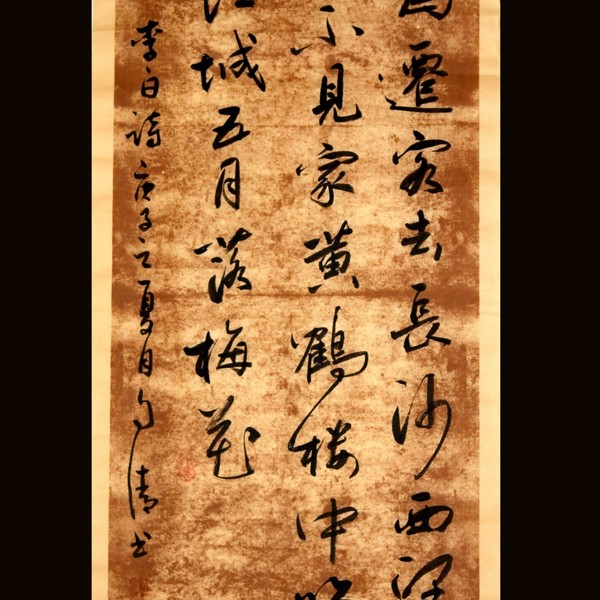 為遷客去長沙西望
不見家黃鶴楼中吹
江城五月落梅花
李白詩庚子之夏月清书